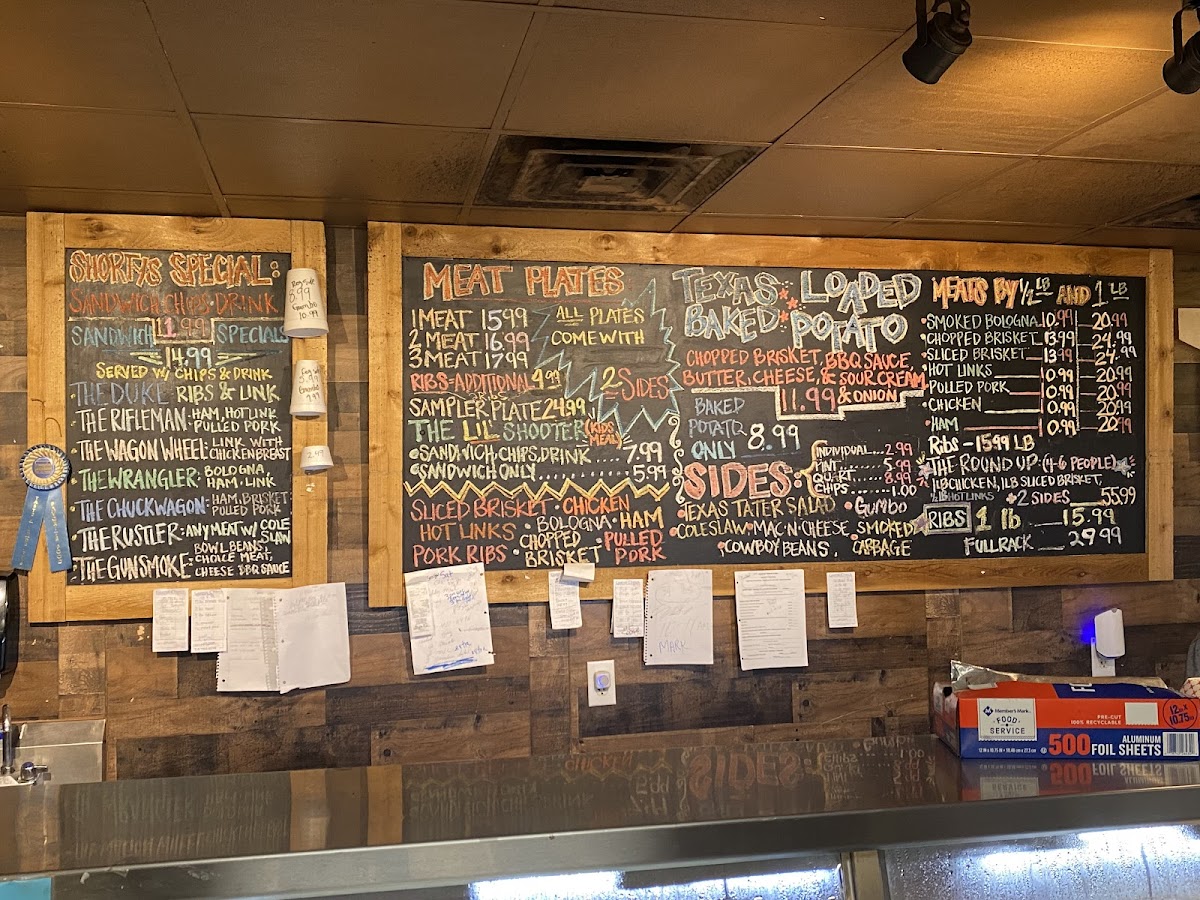 SHORTYS SPECIAL:
SANDWICH·CHIPS·DRINK
11.99
SANDWICH SPECIALS
14.99
SERVED W/ CHIPS & DRINK
THE DUKE: RIBS & LINK
·THE RIFLEMAN: HAM, HOT LINK
PULLED PORK
·THE WAGON WHEEL: LINK WITH
CHICKEN BREAST
·THE WRANGLER: BOLOGNA,
HAM·LINK
·THE CHUCKWAGON: HAM, BRISKET
PULLED PORK
·THE RUSTLER: ANY MEAT W/ COLE
SLAW
·THE GUNSMOKE: BOWL BEANS,
CHOICE MEAT,
CHEESE BBQ SAUCE
10.99
2.49
MEAT PLATES
1 MEAT 15.99
2 MEAT 16.99
3 MEAT 17.99
RIBS-ADDITIONAL 4.99
ALL PLATES
COME WITH
2 SIDES
SAMPLER PLATE 24.99
THE LIL' SHOOTER (KIDS
MEAL)
·SANDWICH, CHIPS, DRINK...... 7.99
·SANDWICH ONLY.......... 5.99
SLICED BRISKET · CHICKEN
HOT LINKS · BOLOGNA · HAM
PORK RIBS · CHOPPED
BRISKET · PULLED
PORK
TEXAS LOADED
BAKED POTATO
CHOPPED BRISKET, BBQ SAUCE,
BUTTER, CHEESE, & SOUR CREAM
11.99 & ONION
BAKED
POTATO
ONLY 8.99
SIDES:
INDIVIDUAL... 2.99
PINT... 5.99
QUART... 8.99
CHIPS... 1.00
·TEXAS TATER SALAD ·GUMBO
·COLESLAW ·MAC 'N' CHEESE, SMOKED
·COWBOY BEANS, CABBAGE
MEATS BY 1/2 LB AND 1 LB
·SMOKED BOLOGNA 10.99 20.99
·CHOPPED BRISKET 13.99 24.99
·SLICED BRISKET 13.99 24.99
·HOT LINKS 10.99 20.99
·PULLED PORK 10.99 20.99
·CHICKEN 10.99 20.99
·HAM 10.99 20.99
Ribs - 15.99 LB
THE ROUND UP: (4-6 PEOPLE)
1LB CHICKEN, 1LB SLICED BRISKET,
1/2 LB HOT LINKS +2 SIDES 55.99
RIBS 1 lb 15.99
FULL RACK 29.99
MARK
Member's Mark
FOOD
SERVICE
PRE-CUT
100% RECYCLABLE
12 IN X
10.75 IN
500 ALUMINUM
FOIL SHEETS